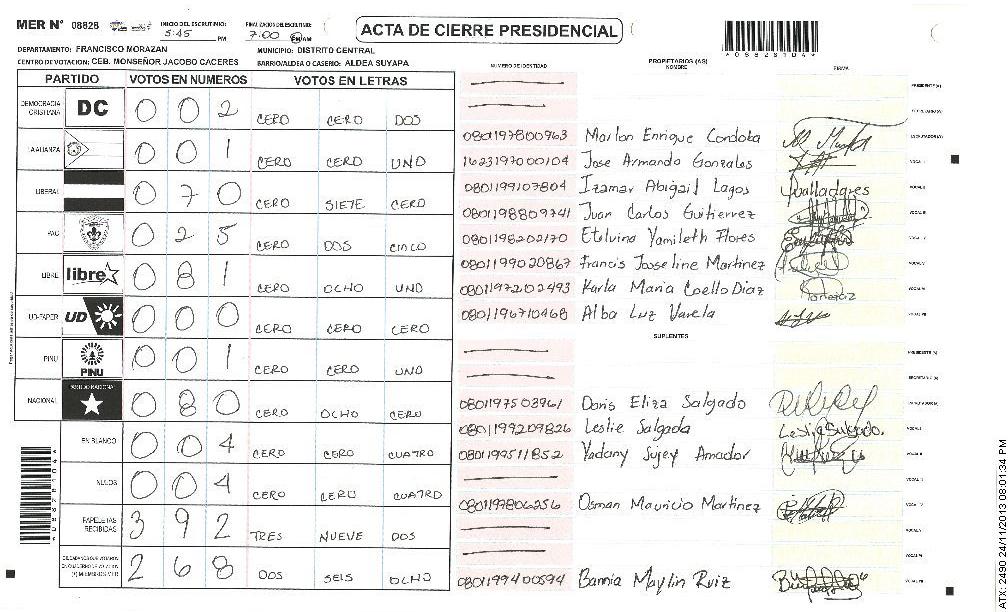 MER Nº 08828 INICIO DEL ESCRUTINIO: 5:45 PM FINALIZACION DEL ESCRUTINIO: 7:00 PM/AM ACTA DE CIERRE PRESIDENCIAL
DEPARTAMENTO: FRANCISCO MORAZAN MUNICIPIO: DISTRITO CENTRAL
CENTRO DE VOTACION: CEB. MONSEÑOR JACOBO CACERES BARRIO/ALDEA O CASERIO: ALDEA SUYAPA
PARTIDO VOTOS EN NUMEROS VOTOS EN LETRAS
DEMOCRACIA CRISTIANA DC 0 0 2 CERO CERO DOS
LA ALIANZA 0 0 1 CERO CERO UNO
LIBERAL 0 7 0 CERO SIETE CERO
PAC 0 2 5 CERO DOS CINCO
LIBRE libre 0 8 1 CERO OCHO UNO
UD-FAPER UD 0 0 0 CERO CERO CERO
PINU PINU 0 0 1 CERO CERO UNO
NACIONAL PARTIDO NACIONAL 0 8 0 CERO OCHO CERO
EN BLANCO 0 0 4 CERO CERO CUATRO
NULOS 0 0 4 CERO CERO CUATRO
PAPELETAS RECIBIDAS 3 9 2 TRES NUEVE DOS
CIUDADANOS QUE VOTARON EN CUADERNO DE VOTACION (+) MIEMBROS MER 2 6 8 DOS SEIS OCHO
NUMERO DE IDENTIDAD PROPIETARIOS (AS) NOMBRE FIRMA
PRESIDENTE (A)
SECRETARIO (A)
0801197800963 Marlon Enrique Cordoba ESCRUTADOR (A)
1623197000104 Jose Armando Gonzales VOCAL I
0801199107804 Izamar Abigail Lagos Jvalladares VOCAL II
0801198809741 Juan Carlos Guitierrez VOCAL III
0801198202170 Etelvina Yamileth Flores
0801199020867 Francis Josseline Martinez VOCAL V
0801197202493 Karla Maria Coello Diaz
0801196710468 Alba Luz Varela VOCAL VII
SUPLENTES
PRESIDENTE (A)
SECRETARIO (A)
0801197503961 Doris Eliza Salgado ESCRUTADOR (A)
0801199209826 Leslie Salgada Leslie Salgado. VOCAL I
0801199511852 Yadany Sujey Amador VOCAL II
0801197806256 Osman Mauricio Martinez VOCAL IV
0801199400594 Bannia Maylin Ruiz VOCAL VII
ATX-2490 24/11/2013 08:01:34 PM